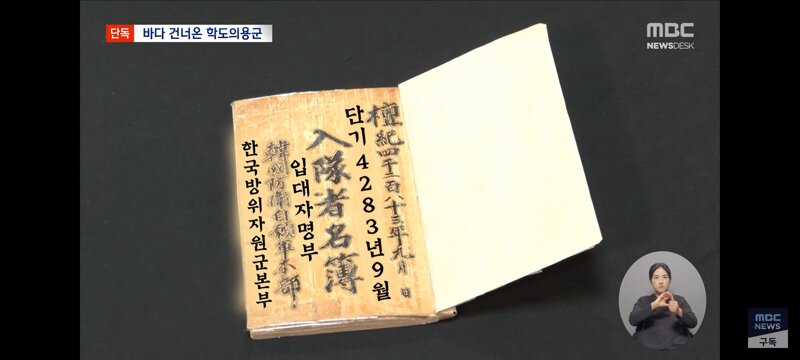 단독 바다 건너온 학도의용군
MBC
NEWSDESK
檀紀四千二百八十三年九月 日
단기 4283년 9월
入隊者名簿
입대자명부
韓国防衛自願軍本部
한국방위자원군본부
MBC
NEWS
구독